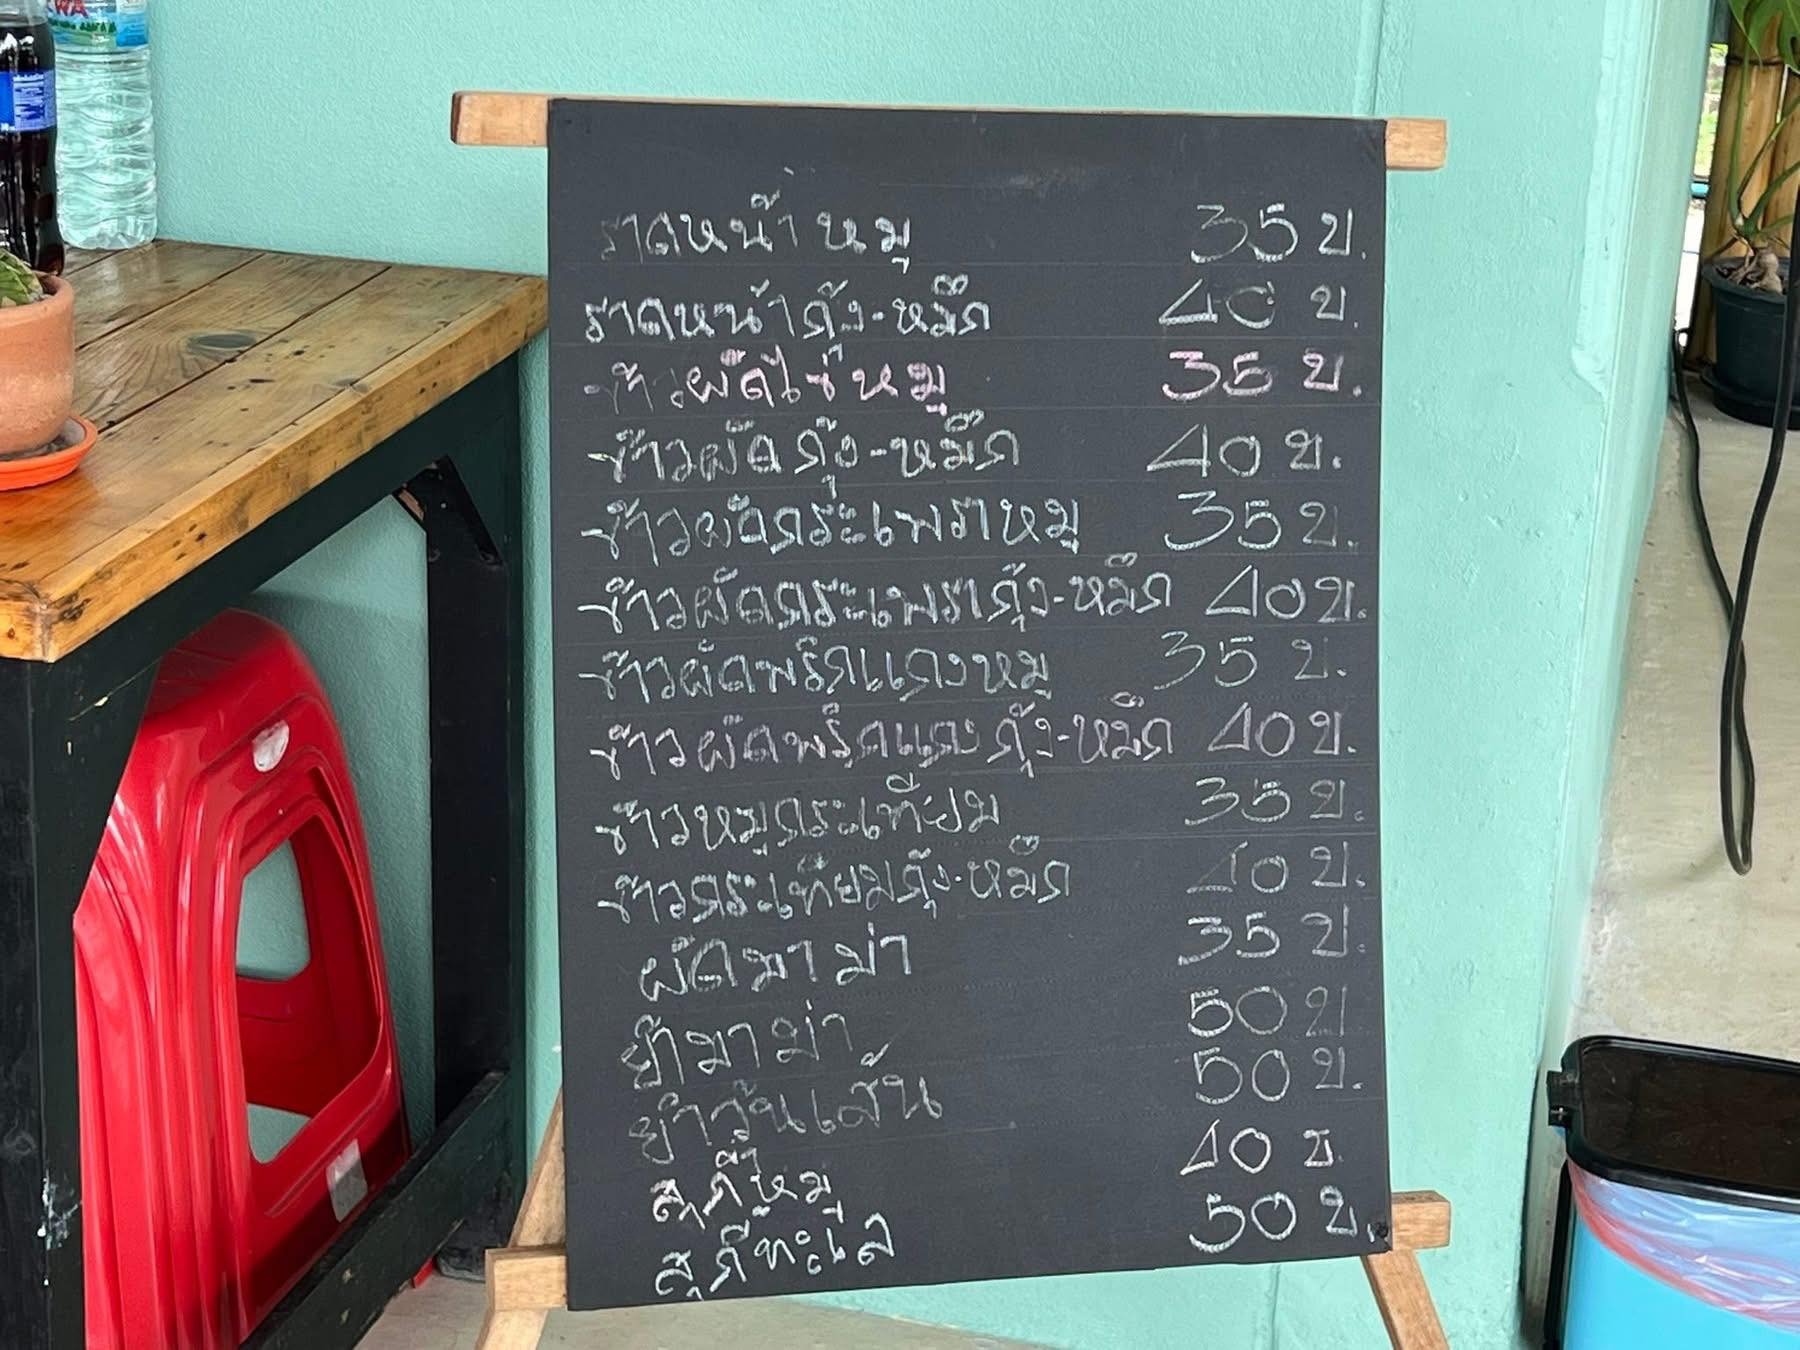 ราดหน้าหมู 35 บ.
ราดหน้ากุ้ง-หมึก 40 บ.
ข้าวผัดไข่หมู 35 บ.
ข้าวผัดกุ้ง-หมึก 40 บ.
ข้าวผัดกระเพราหมู 35 บ.
ข้าวผัดกระเพรากุ้ง-หมึก 40 บ.
ข้าวผัดพริกแกงหมู 35 บ.
ข้าวผัดพริกแกงกุ้ง-หมึก 40 บ.
ข้าวหมูกระเทียม 35 บ.
ข้าวกระเทียมกุ้ง-หมึก 40 บ.
ผัดมาม่า 35 บ.
ยำมาม่า 50 บ
ยำวุ้นเส้น 50 บ.
สุกี้หมู 40 บ.
สุกี้ทะเล 50 บ.